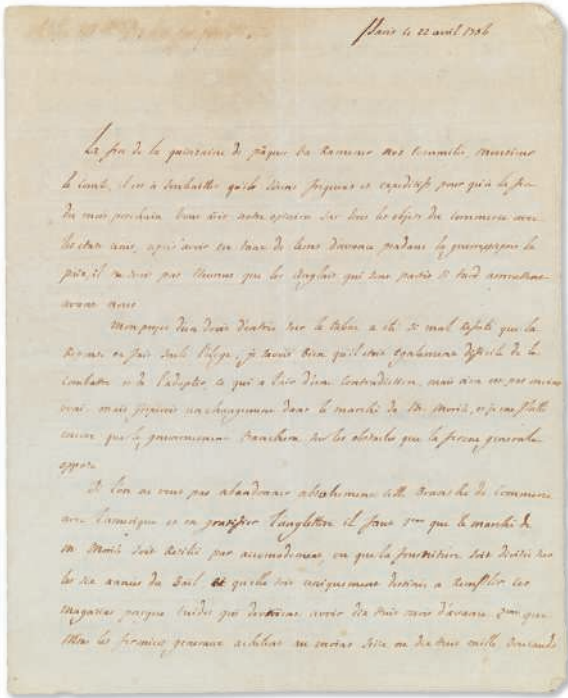 Paris le 22 avril 1786
La fin de la quinzaine de pâques va ramener nos Committés, monsieur
le comte, il est à souhaitter qu'ils soient frequens et expeditifs pour qu'à la fin
du mois prochain vous aiés notre opinion sur tous les objets du commerce avec
les etats unis, après avoir eu tant de tems d'avance pendant la guerre, depuis la
paix, il ne seroit pas heureux que les anglais qui sont partis si tard arrivassent
avant nous
Mon projet d'un droit d'entrée sur le tabac a été si mal refuté que la
ferme en fait seule l'eloge, je savois bien qu'il etoit egalement difficile de le
combattre et de l'adopter, ce qui a l'air d'une contradiction, mais n'en est pas moins
vrai. mais j'espere un changement dans le marché de M. Morris, et je me flatte
encore que le gouvernement tranchera sur les obstacles que la ferme generale
oppose
Si l'on ne veut pas abandonner absolument cette Branche de Commerce
avec l'amerique et en gratifier l'angleterre il faut 1mo que le marché de
M. Morris soit resilié par accomodement, ou que la fourniture soit divisée sur
les six années du Bail et qu'elle soit uniquement destinée a remplir les
magasins presque vuides qui devroient avoir dix huit mois d'avance 2mo que
Mrs les fermiers generaux achetent au moins seize ou dix huit mille boucauds